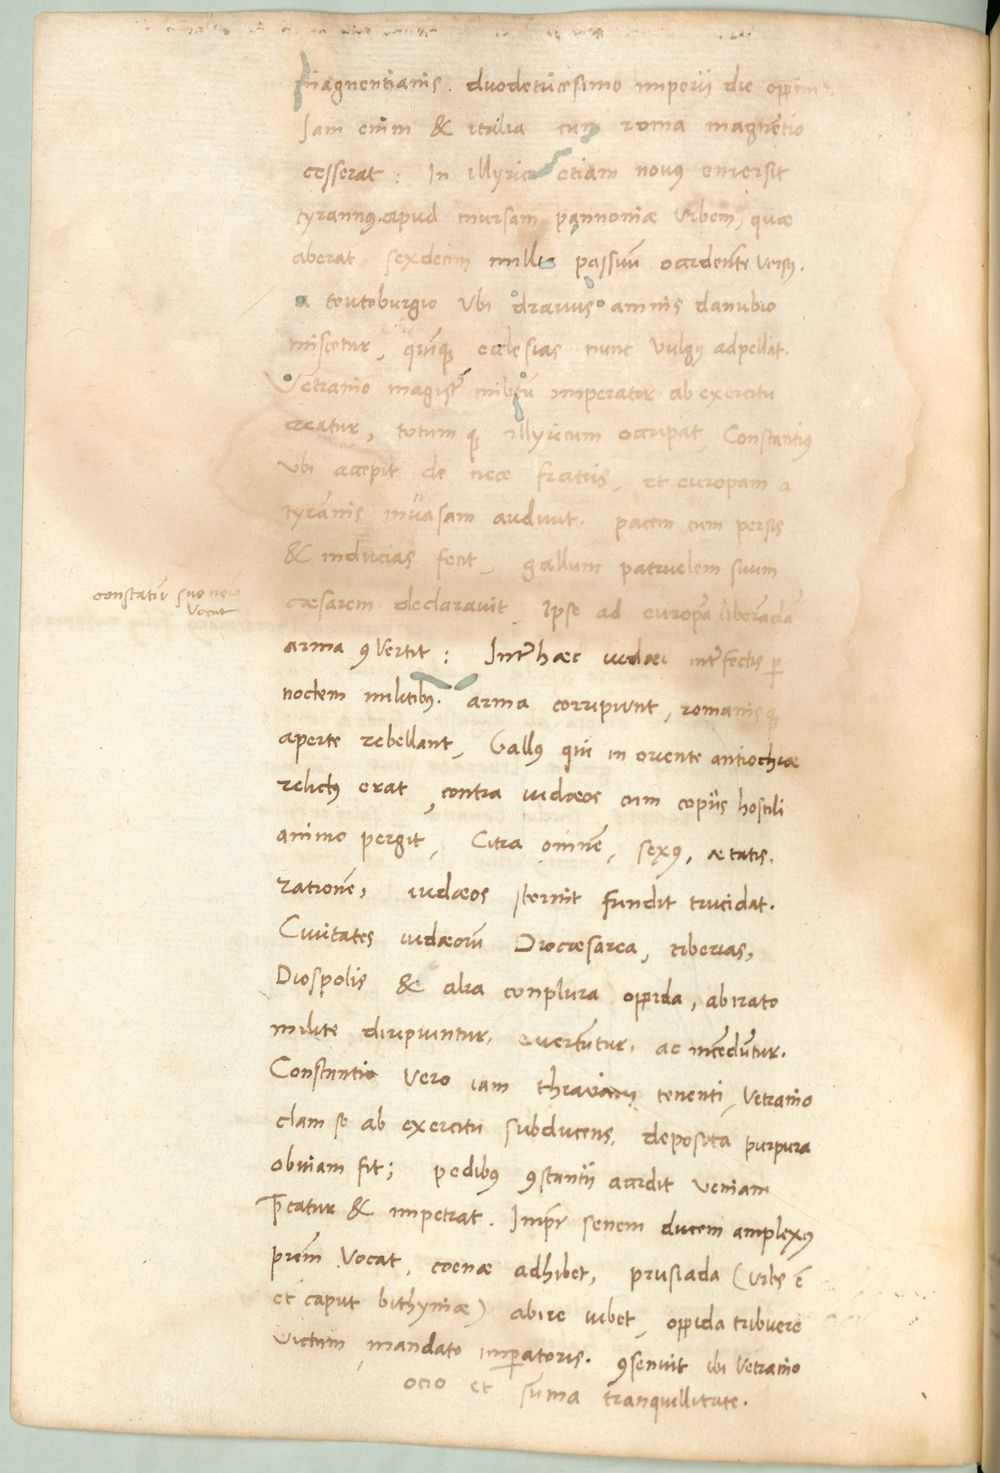 magnentianis. duodetricesimo imperii die
Jam enim & italia cum roma magnētio
cesserat: In illyrico etiam novus emersit
tyrannus. apud mursam pannoniæ Vrbem, quæ
aberat sexdecim millia passuū occidente versus.
a teutoburgio Vbi dravus amnis danubio
miscetur, quinque ecclesias nunc Vulgus adpellat.
Vetranio magister militū imperator ab exercitu
creatur, totumque illyricum occupat. Constantius
Vbi accepit de nece fratris, et europam a
tyrānis invasam audivit. pacem cum persis
& inducias fecit, gallum patruelem suum
constātiū suo noīe
Vocat
cæsarem declaravit. Ipse ad europā liberādā
arma ꝯVertit: Inter hæc iudæi interfectis per
noctem militibus. arma corripiunt, romanisque
aperte rebellant, Gallus qui in oriente antiochiæ
relictus erat, contra iudæos cum copiis hostili
animo pergit, Citra omnē, sexus, ætatis.
rationē, iudæos sternit fundit trucidat.
Civitates iudæorū Diocæsarea, tiberias,
Diospolis & alia conplura oppida, ab irato
milite diripiuntur, evertūtur, ac incēdūtur.
Constantio Vero iam thraciam tenenti, Vetranio
clam se ab exercitu subducens, deposita purpura
obviam fit; pedibus ꝯstantii accidit Veniam
p̄catur & impetrat. Imp̄r senem ducem amplexus
p̄rem Vocat, coenæ adhibet, prusiada (Vrbs ē
et caput bithyniæ) abire iubet, oppida tribuere
Victum mandato imperatoris. ꝯsenuit ibi Vetranio
ocio et sūma tranquillitate.